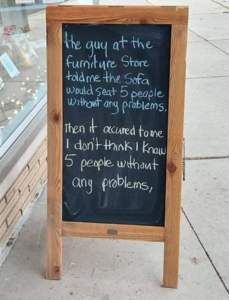 The guy at the
furniture Store
told me the Sofa
would seat 5 people
without any problems.
Then it accured to me
I don't think I know
5 people without
any problems,